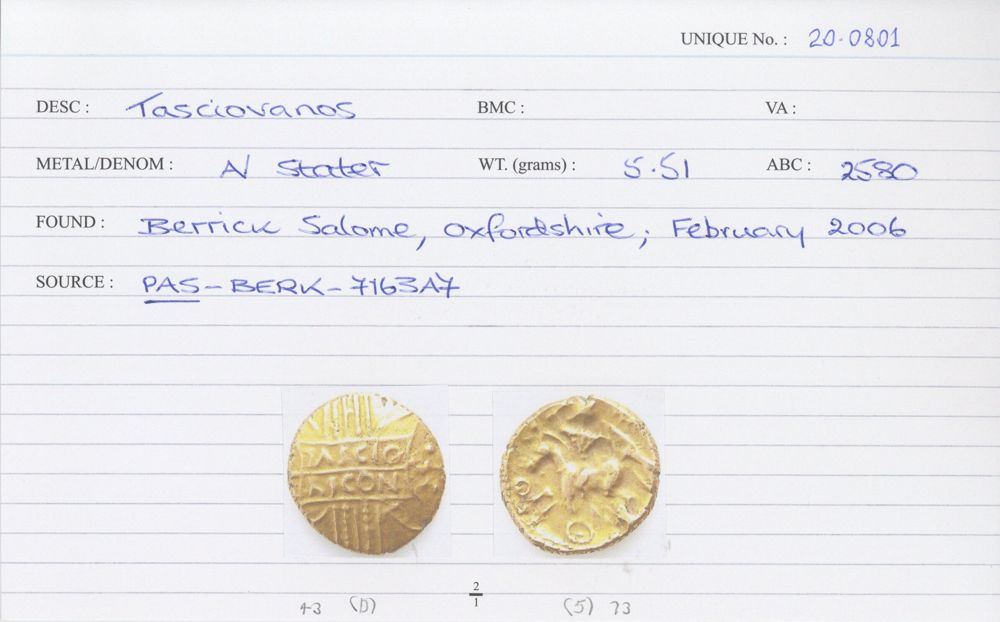 UNIQUE No. : 20-0801
DESC : Tasciovanos BMC : VA :
METAL/DENOM : A/ Stater WT. (grams) : 5.51 ABC : 2580
FOUND : Berrick Salome, Oxfordshire; February 2006
SOURCE : PAS-BERK-7163A7
TASCIO
RICON
2
1
43 (D) (5) 73